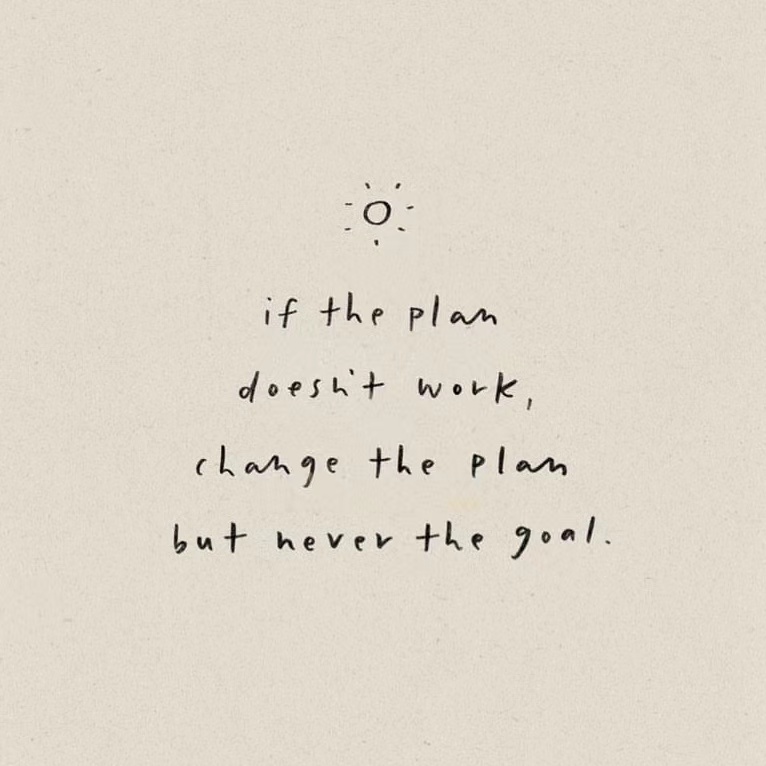 if the plan
doesn't work,
change the plan
but never the goal.